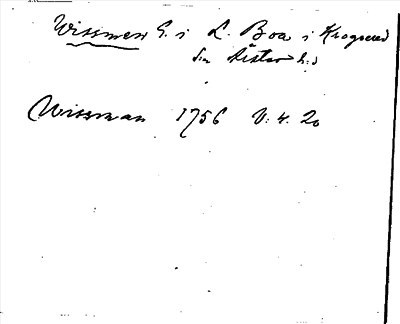 Wissmen G. i L. Boa i Krogsered
Årstad h:d
Wissman 1756 V: 4. 20